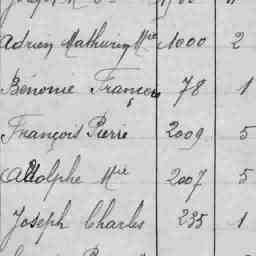 Adrien Mathurin Mie 1000 2
Bénonie François 78 1
François Pierre 2009 5
Adolphe Mie 2007 5
Joseph Charles 235 1